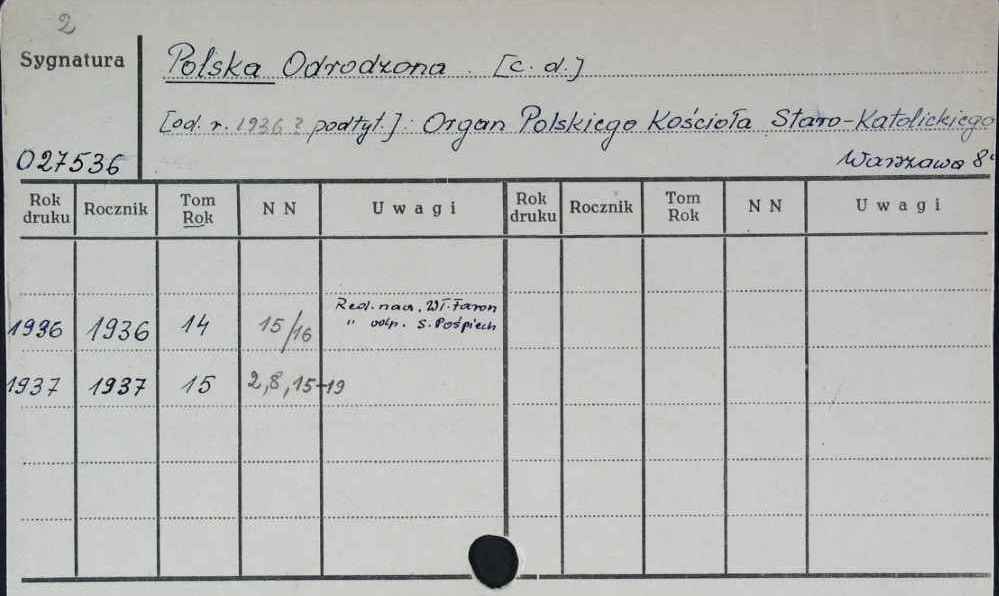 2
Sygnatura
Polska Odrodzona. [c. d.]
[od. r. 1936? podtyt.]: Organ Polskiego Kościoła Staro-Katolickiego
027536
Warszawa 8°
Rok druku Rocznik Tom Rok N N Uwagi Rok druku Rocznik Tom Rok N N Uwagi
1936 1936 14 15/16 Red. nacz. Wł. Faron
" odp. S. Pośpiech
1937 1937 15 2,8,15-19